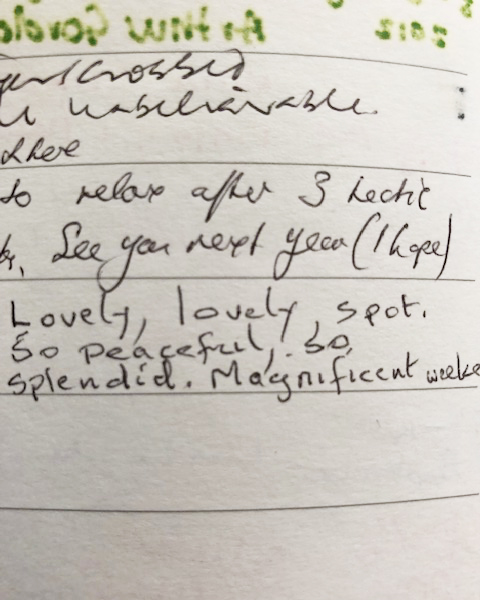 unbelievable.
there
to relax after 3 hectic
See you next year (I hope)
Lovely, lovely spot.
So peaceful, so
splendid. Magnificent weeke